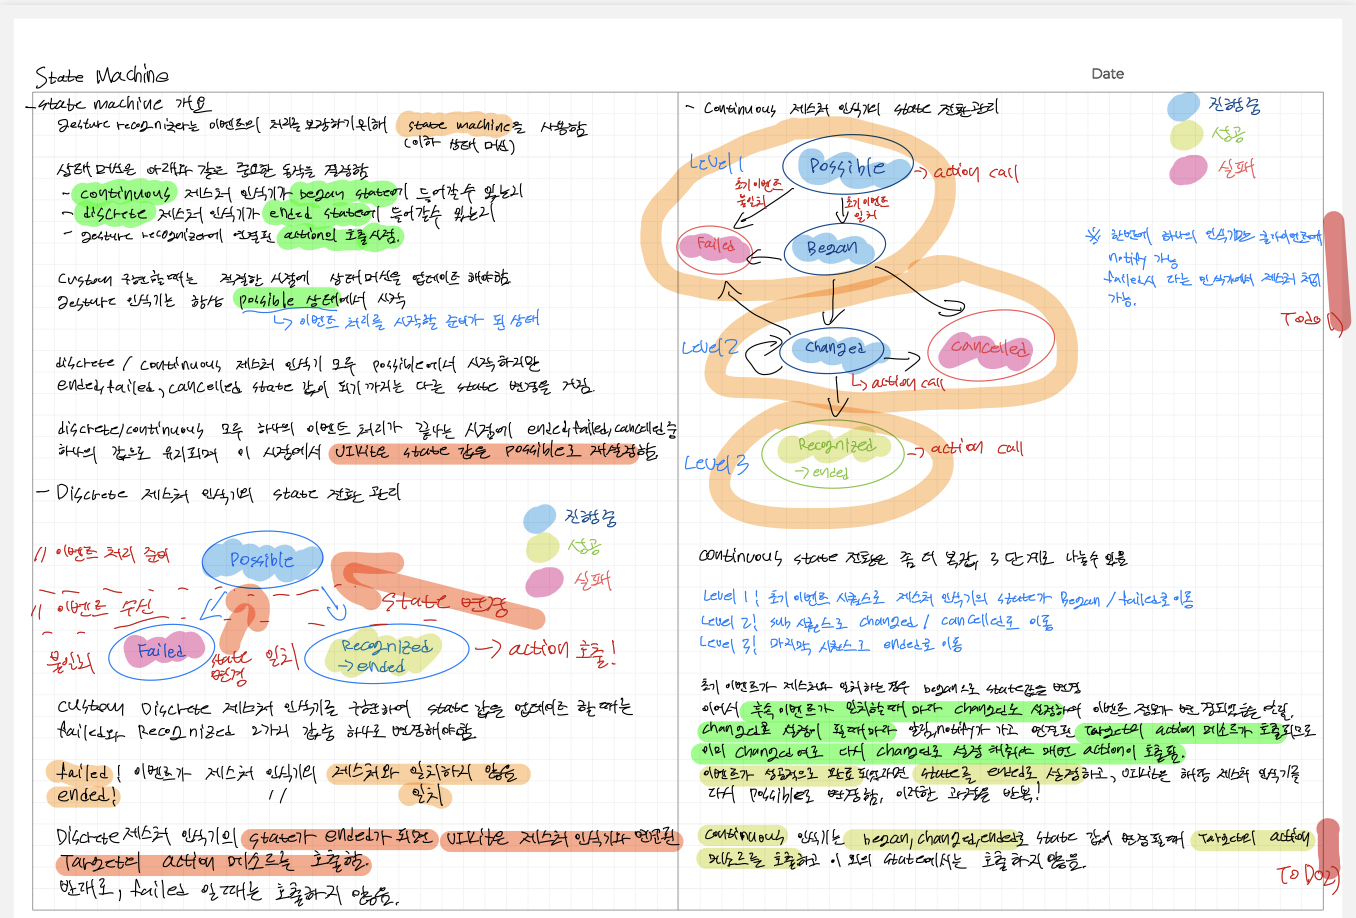 State Machine
Date
- state machine 개요
gesture recognizer는 이벤트의 처리를 보장하기위해 state machine을 사용함
(이하 상태 머신)
상태 머신은 아래와 같은 중요한 동작을 결정함
- continuous 제스처 인식기가 began state에 들어갈수 있는지
- discrete 제스처 인식기가 ended state에 들어갈수 있는지
- gesture recognizer에 연결된 action의 호출시점.
Custom 구현할때는 적절한 시점에 상태머신을 업데이트 해야함
gesture 인식기는 항상 possible 상태에서 시작
↳ 이벤트 처리를 시작할 준비가 된 상태
discrete / continuous 제스처 인식기 모두 possible에서 시작하지만
ended, failed, cancelled state 값이 되기 까지는 다른 state 변경을 거침
discrete/continuous 모두 하나의 이벤트 처리가 끝나는 시점에 ended, failed, cancelled 중
하나의 값으로 유지되며 이 시점에서 UIKit은 state 값을 possible로 재설정함
- Discrete 제스처 인식기의 state 전환 관리
진행중
성공
실패
// 이벤트 처리 준비
Possible
// 이벤트 수신
state 변경
불일치
Failed
state
변경
일치
Recognized
→ ended
→ action 호출!
Custom Discrete 제스처 인식기를 구현하여 state 값을 업데이트 할때는
failed와 Recognized 2가지 값중 하나로 변경해야함
failed! 이벤트가 제스처 인식기의 제스처와 일치하지 않음
ended! // 일치
Discrete 제스처 인식기의 state가 ended가 되면 UIKit은 제스처 인식기와 연결된
Target의 action 메소드를 호출함.
반대로, failed 일때는 호출하지 않음.
- Continuous 제스처 인식기의 state 전환관리
진행중
성공
실패
Level 1
Possible
→ action call
초기이벤트
불일치
초기이벤트
일치
Failed
Began
※ 한번에 하나의 인식기만
notify 가능
failed시 다른 인식기에서 제스처 처리
가능.
Todo 1)
Level 2
Changed
Cancelled
↳ action call
Level 3
Recognized
→ ended
→ action call
continuous state 전환은 좀 더 복잡, 3 단계로 나눌수 있음
Level 1! 초기 이벤트 시퀀스로 제스처 인식기의 state가 Began / failed로 이동
Level 2! sub 시퀀스로 changed / cancelled로 이동
Level 3! 마지막 시퀀스로 ended로 이동
초기 이벤트가 제스처와 일치하는경우 began으로 state값을 변경
이어서 후속 이벤트가 일치할때 마다 changed로 설정하여 이벤트 정보가 변경되었음을 알림.
changed로 설정이 될때마다 알림, notify가 가고 연결된 Target의 action 메소드가 호출되므로
이미 changed여도 다시 changed로 설정 해줘야 매번 action이 호출됨.
이벤트가 성공적으로 완료되었다면 state를 ended로 설정하고, UIKit은 해당 제스처 인식기를
다시 possible로 변경함, 이러한 과정을 반복!
continuous 인식기는 began, changed, ended로 state 값이 변경될때 Target의 action
메소드를 호출하고 이 외의 state에서는 호출하지 않음.
TODO 2)